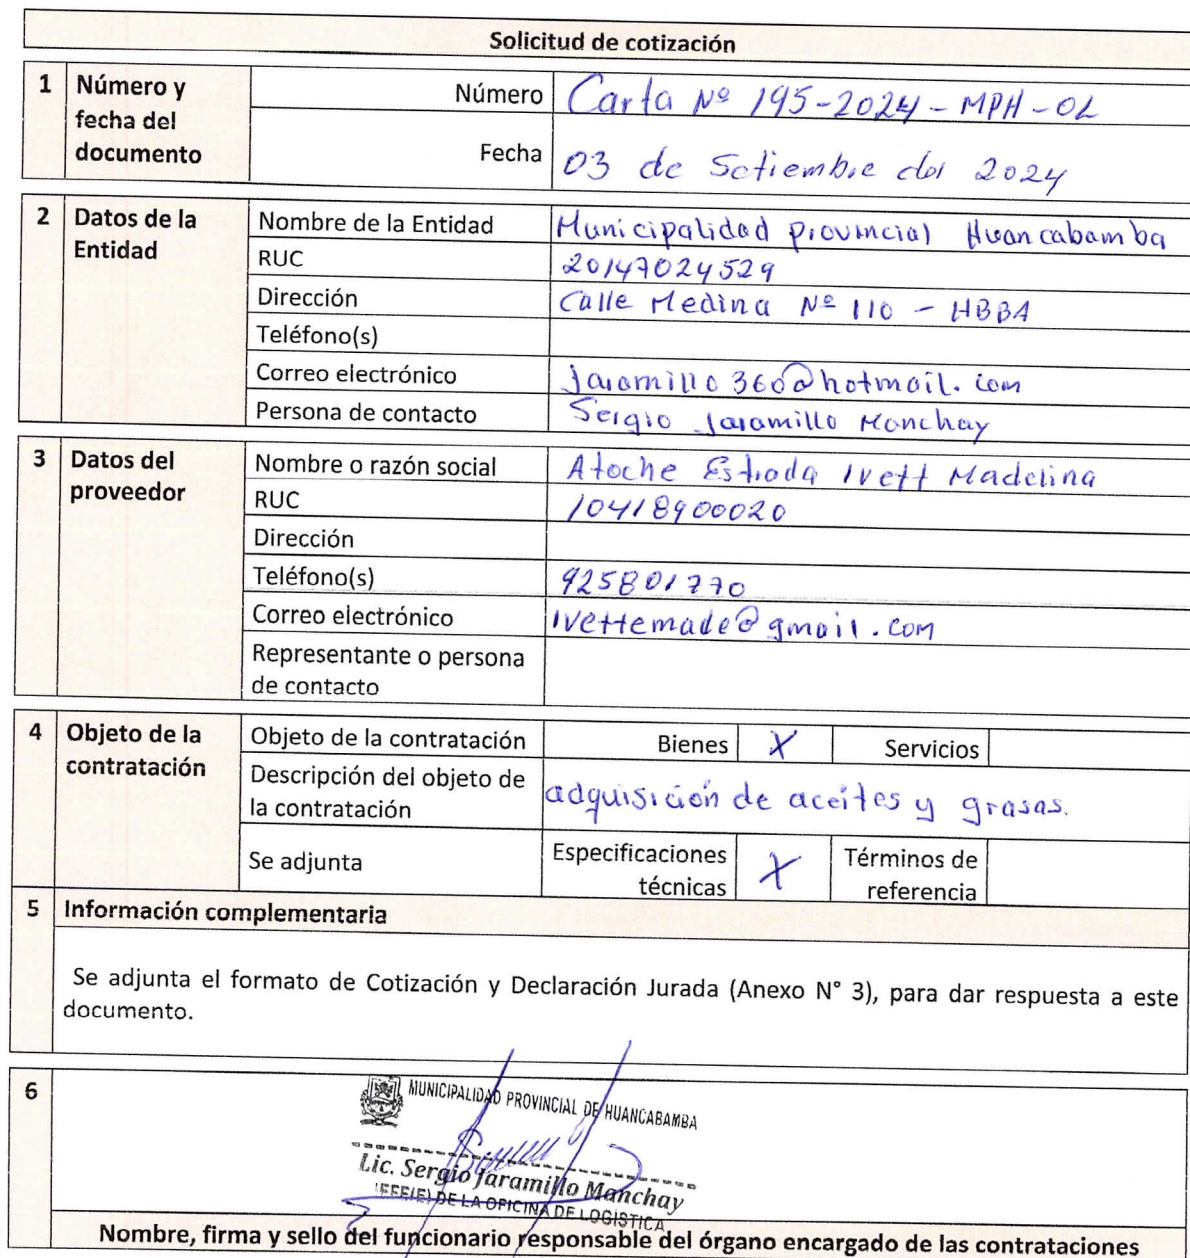 Solicitud de cotización
1 Número y fecha del documento
Número Carta Nº 195-2024-MPH-OL
Fecha 03 de Setiembre del 2024
2 Datos de la Entidad
Nombre de la Entidad Municipalidad provincial Huancabamba
RUC 20147024529
Dirección Calle Medina Nº 110 - HBBA
Teléfono(s)
Correo electrónico Jaramillo360@hotmail.com
Persona de contacto Sergio Jaramillo Manchay
3 Datos del proveedor
Nombre o razón social Atoche Estrada Ivett Madelina
RUC 10418900020
Dirección
Teléfono(s) 925801770
Correo electrónico Ivettemade@gmail.com
Representante o persona de contacto
4 Objeto de la contratación
Objeto de la contratación Bienes X Servicios
Descripción del objeto de la contratación adquisición de aceites y grasas.
Se adjunta Especificaciones técnicas X Términos de referencia
5 Información complementaria
Se adjunta el formato de Cotización y Declaración Jurada (Anexo N° 3), para dar respuesta a este
documento.
6
MUNICIPALIDAD PROVINCIAL DE HUANCABAMBA
Lic. Sergio Jaramillo Manchay
JEFE(E) DE LA OFICINA DE LOGISTICA
Nombre, firma y sello del funcionario responsable del órgano encargado de las contrataciones